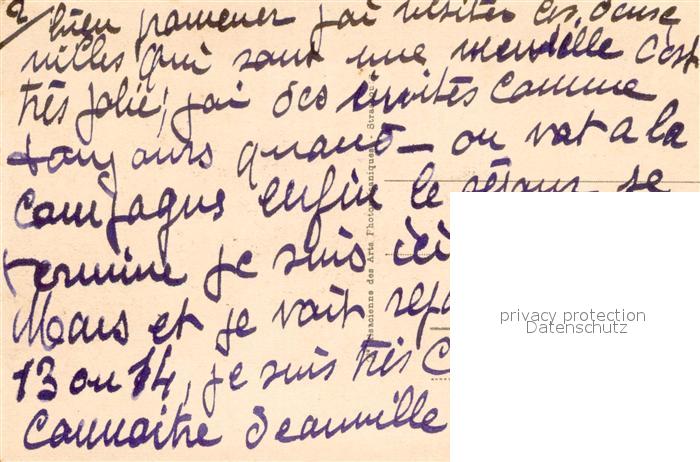 2/ bien promener j'ai visiter les deux
villes qui sont une merveille c'est
très jolie, j'ai des invités comme
toujours quand on vat a la
campagne enfin le séjour se
termine je suis ici
Mars et je vait repa
13 ou 14, je suis très c
connaitre deauville
Alsacienne des Arts Photomécaniques - Strasbourg
privacy protection
Datenschutz